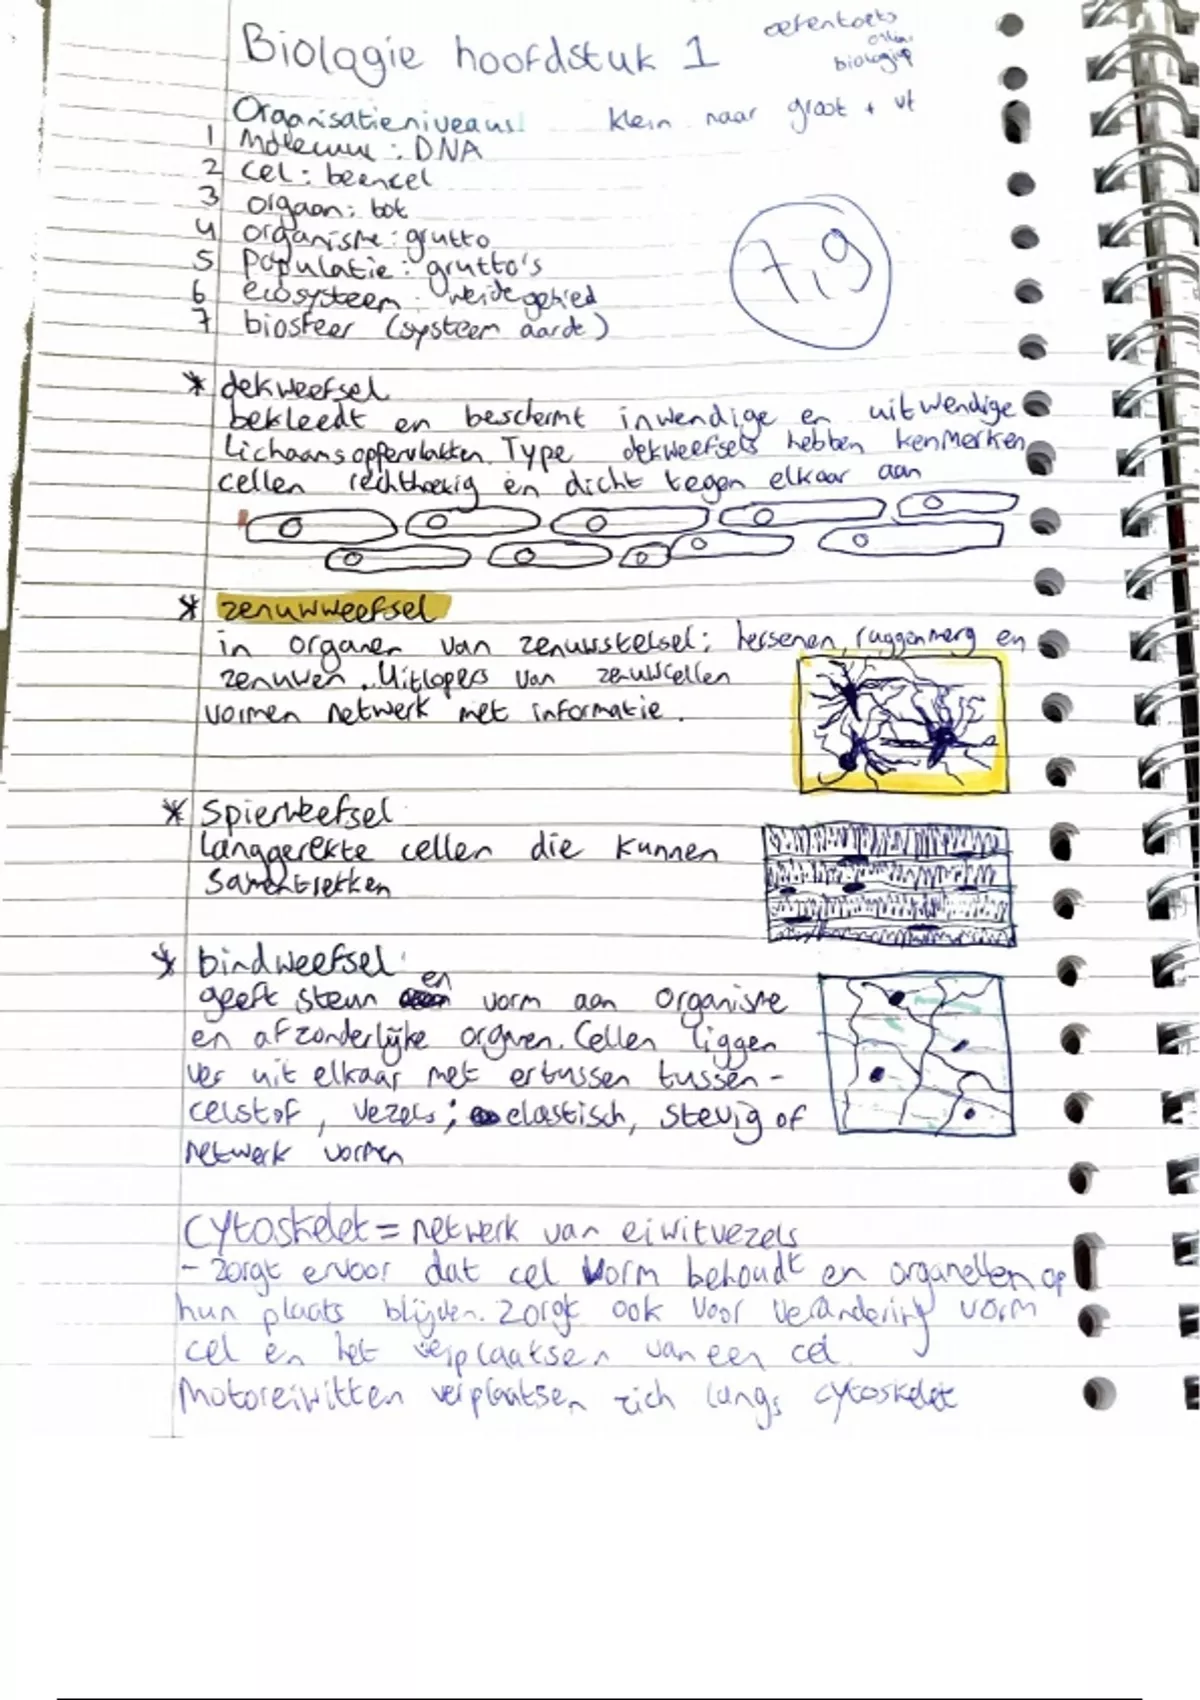 Biologie hoofdstuk 1
oefentoets
biologie
Organisatieniveaus klein naar groot + vt
1 Molecuul : DNA
2 cel : beencel
3 orgaan : bot
4 organisme : grutto
5 populatie : grutto's
6 ecosysteem : weidegebied
7 biosfeer (systeem aarde)
7,9
* dekweefsel
bekleedt en beschermt inwendige en uitwendige
Lichaamsoppervlakten. Type dekweefsels hebben kenmerken
cellen rechthoekig en dicht tegen elkaar aan
* zenuwweefsel
in organen van zenuwstelsel; hersenen, ruggenmerg en
zenuwen. Uitlopers van zenuwcellen
vormen netwerk met informatie.
* spierweefsel
langgerekte cellen die kunnen
samentrekken
* bindweefsel
geeft steun en vorm aan organisme
en afzonderlijke organen. Cellen liggen
ver uit elkaar met ertussen tussen-
celstof, vezels; elastisch, stevig of
netwerk vormen
Cytoskelet = netwerk van eiwitvezels
- zorgt ervoor dat cel vorm behoudt en organellen op
hun plaats blijven. Zorgt ook voor verandering vorm
cel en het verplaatsen van een cel
Motoreiwitten verplaatsen zich langs cytoskelet